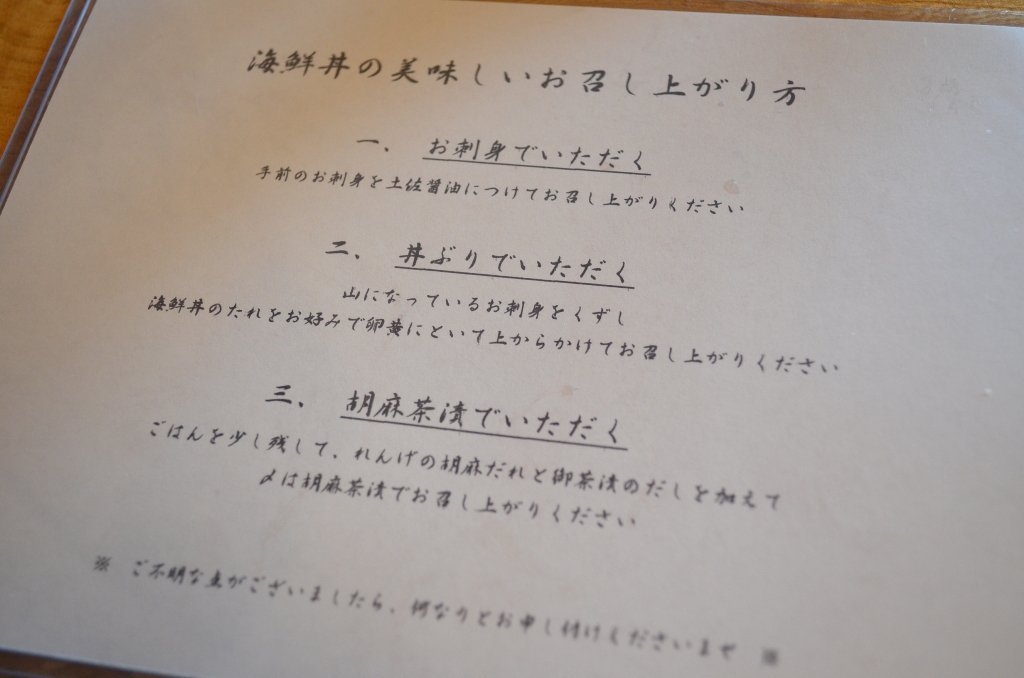 海鮮丼の美味しいお召し上がり方
一、 お刺身でいただく
手前のお刺身を土佐醤油につけてお召し上がりください
二、 丼ぶりでいただく
山になっているお刺身をくずし
海鮮丼のたれをお好みで卵黄にといて上からかけてお召し上がりください
三、 胡麻茶漬でいただく
ごはんを少し残して、れんげの胡麻だれと御茶漬のだしを加えて
〆は胡麻茶漬でお召し上がりください
※ ご不明な点がございましたら、何なりとお申し付けくださいませ ※